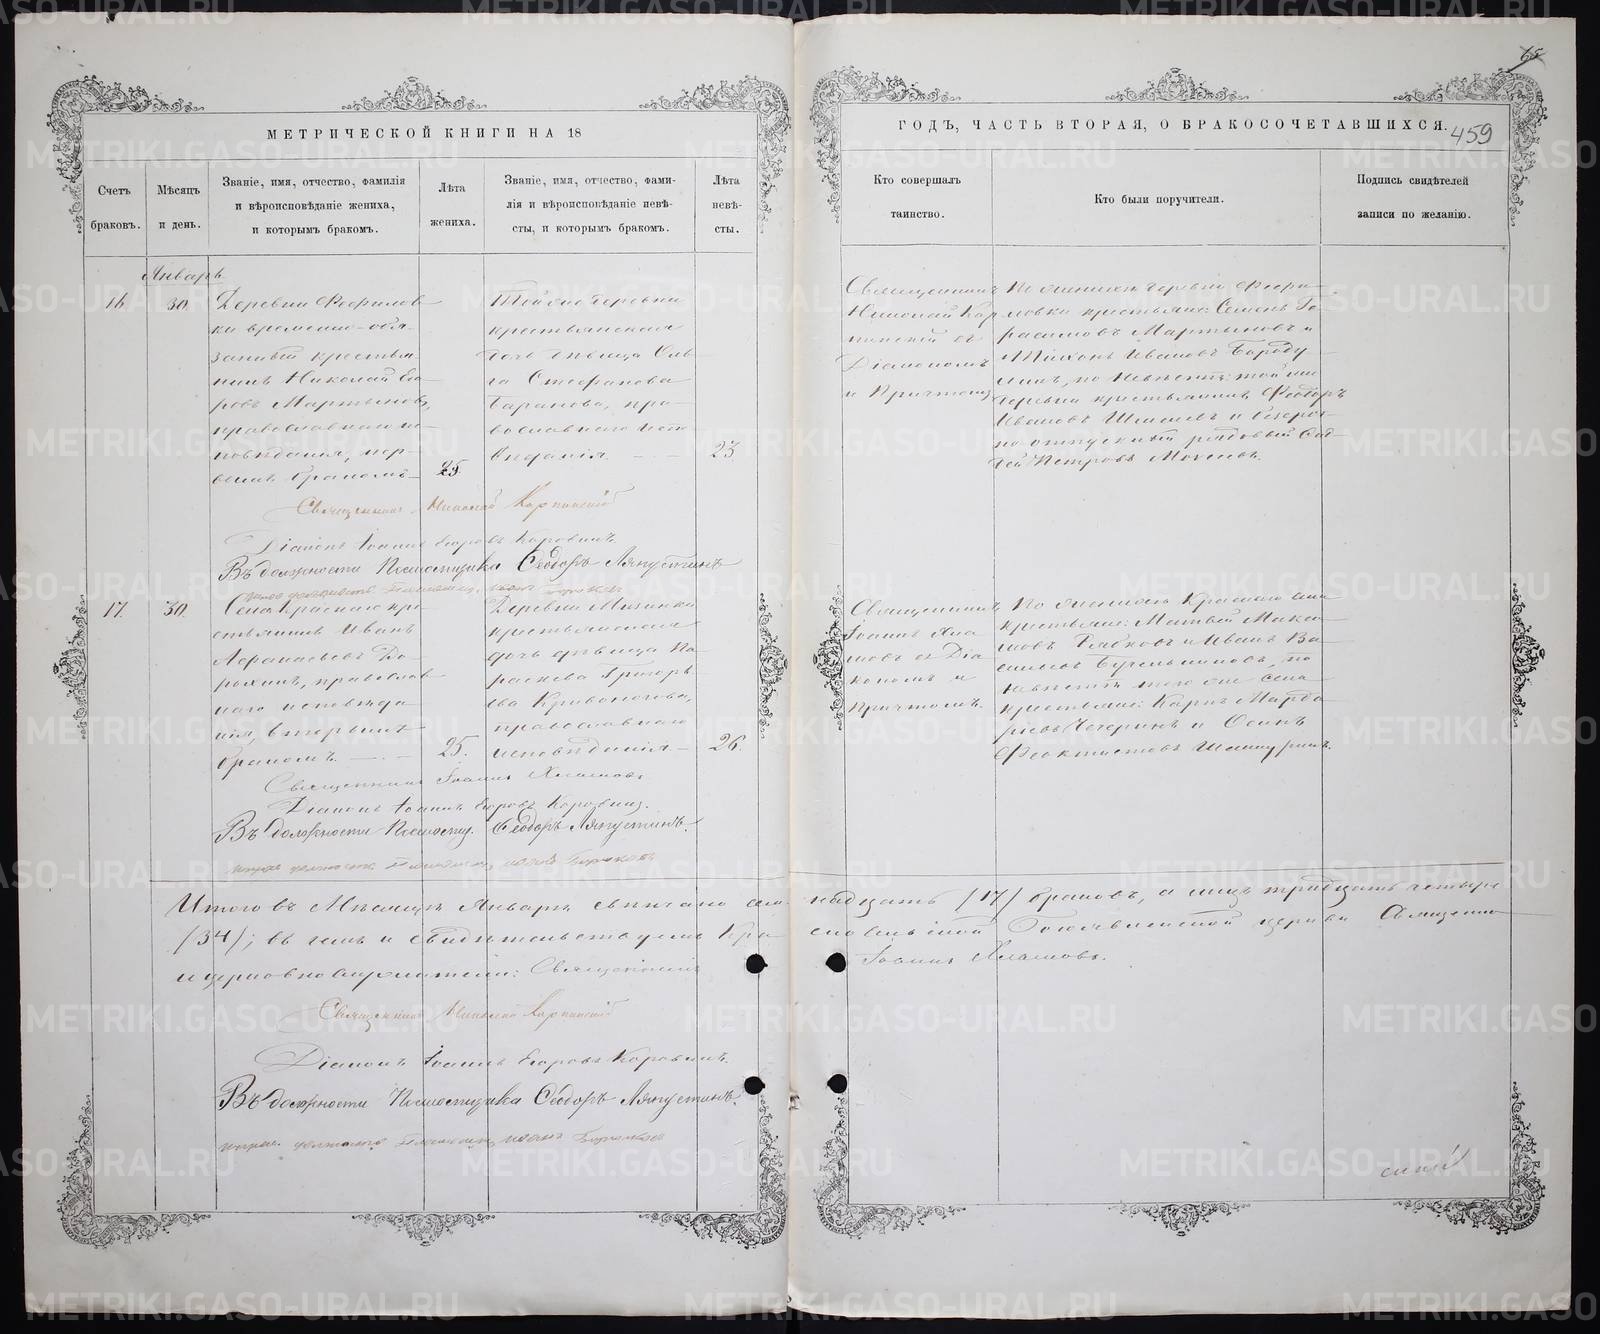 65
459
МЕТРИЧЕСКОЙ КНИГИ НА 18
ГОДЪ, ЧАСТЬ ВТОРАЯ, О БРАКОСОЧЕТАВШИХСЯ.
Счетъ браковъ.
Мѣсяцъ и день.
Званіе, имя, отчество, фамилія
и вѣроисповѣданіе жениха,
и которымъ бракомъ.
Лѣта
жениха.
Званіе, имя, отчество, фами-
лія и вѣроисповѣданіе невѣ-
сты, и которымъ бракомъ.
Лѣта
невѣ-
сты.
Кто совершалъ
таинство.
Кто были поручители.
Подпись свидѣтелей
записи по желанію.
Январь
16
30
Деревни Феофилов
ки временно-обя-
занный крестья-
нинъ Николай Его-
ровъ Мартыновъ,
православнаго ис-
повѣданія, пер-
вымъ бракомъ
25
Той же деревни
крестьянская
дочь дѣвица Оль-
га Стефанова
Баранова, пра-
вославнаго испо
вѣданія
23
Священникъ
Николай Кар
пинский съ
Діакономъ
и Причтомъ
По женихѣ деревни Феофи-
ловки крестьяне: Семенъ Ге-
расимовъ Мартыновъ и
Тихонъ Ивановъ Бороду
линъ, по невѣстѣ: той же
деревни крестьянинъ Феодоръ
Ивановъ Шмелевъ и безсроч-
но отпускный рядовый
Петровъ
Священникъ Николай Карпинский
Діаконъ Іоаннъ Егоровъ Коровинъ
Въ должности Псаломщика Ѳеодоръ Ляпустинъ
17.
30.
Села Краснаго кре-
стьянинъ Иванъ
Афанасьевъ До-
рыхинъ, православ
наго исповѣда
нія, вторымъ
бракомъ.
25.
Деревни
крестьянская
дочь дѣвица Па-
раскева Григорь-
ева Кривоногова,
православнаго
исповѣданія
26.
Священникъ
Іоаннъ Хла
мовъ съ Діа
кономъ и
Причтомъ.
По женихѣ Краснаго села
крестьяне: Матвѣй Макси
мовъ Рябковъ и Иванъ Ва
сильевъ по
невѣстѣ того же села
крестьяне: Карпъ
и Осипъ
Феоктистовъ
Священникъ Іоаннъ Хламовъ.
Діаконъ Іоаннъ Егоровъ Коровинъ.
Въ должности Псаломщ. Ѳеодоръ Ляпустинъ.
Итого въ Мѣсяцѣ Январѣ свѣнчано сем-
надцать /17/ браковъ, а лицъ тридцать четыре
/34/; въ чемъ и свидѣтельствуемъ Кра
сносельской Богоявленской церкви Священно
и церковнослужители: Священникъ
Іоаннъ Хламовъ.
Священникъ Николай Карпинский
Діаконъ Іоаннъ Егоровъ Коровинъ.
Въ должности Псаломщика Ѳеодоръ Ляпустинъ.
METRIKI.GASO-URAL.RU